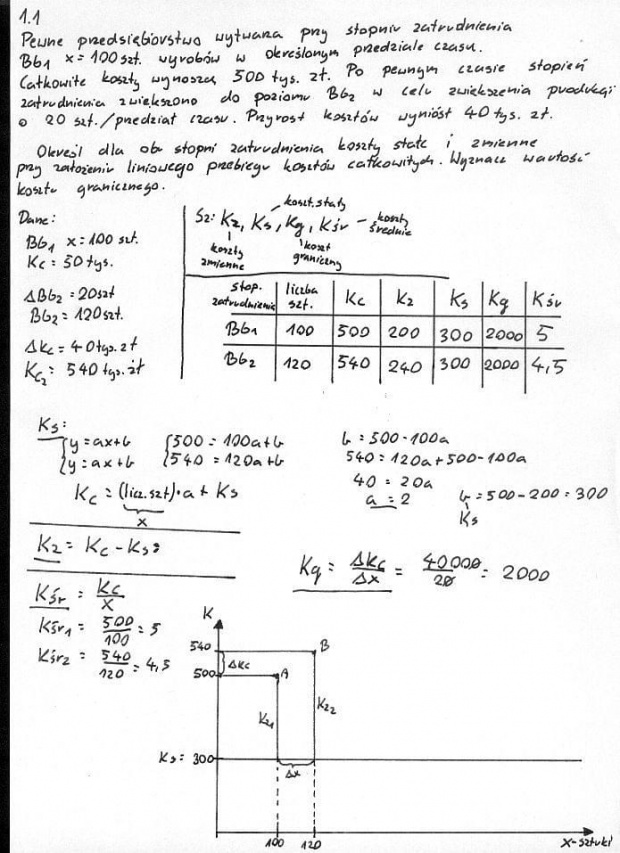 1.1
Pewne przedsiębiorstwo wytwarza przy stopniu zatrudnienia
Bb1 x = 100 szt. wyrobów w określonym przedziale czasu.
Całkowite koszty wynoszą 500 tys. zł. Po pewnym czasie stopień
zatrudnienia zwiększono do poziomu Bb2 w celu zwiększenia produkcji
o 20 szt./przedział czasu. Przyrost kosztów wyniósł 40 tys. zł.
Określ dla obu stopni zatrudnienia koszty stałe i zmienne
przy założeniu liniowego przebiegu kosztów całkowitych. Wyznacz wartość
kosztu granicznego.
Dane:
Bb1 x = 100 szt.
Kc = 50 tys.
ΔBb2 = 20szt
Bb2 = 120szt.
Δkc = 40 tys. zł
Kc2 = 540 tys. zł
koszt. stały
Sz: Kz, Ks, Kg, Kśr - koszty średnie
koszty zmienne
koszt graniczny
stop. zatrudnienia | liczba szt. | Kc | Kz | Ks | Kg | Kśr
Bb1 | 100 | 500 | 200 | 300 | 2000 | 5
Bb2 | 120 | 540 | 240 | 300 | 2000 | 4,5
Ks:
{y = ax+b {500 = 100a+b b = 500-100a
{y = ax+b {540 = 120a+b 540 = 120a+500-100a
40 = 20a
Kc = (licz.szt)·a + Ks a = 2 b = 500-200 = 300
x Ks
Kz = Kc - Ks =
Kg = ΔKc/Δx = 40000/20 = 2000
Kśr = Kc/x
Kśr1 = 500/100 = 5
Kśr2 = 540/120 = 4,5
K
540 B
Δkc
500 A
Kz1 Kz2
Ks = 300
Δx
100 120 x-sztuki